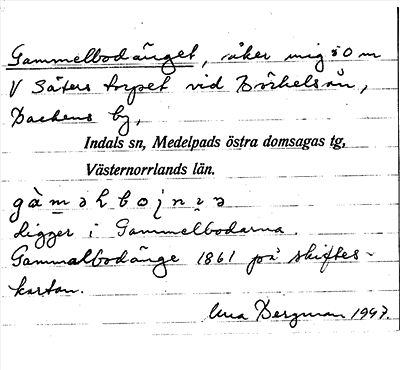 Gammelbodänget, åker mig 50 m
V Säters torpet vid Börkelsån,
Backens by,
Indals sn, Medelpads östra domsagas tg,
Västernorrlands län.
ligger i Gammelbodarna.
Gammalbodänge 1861 på skiftes-
kartan.
Bergman 1947.